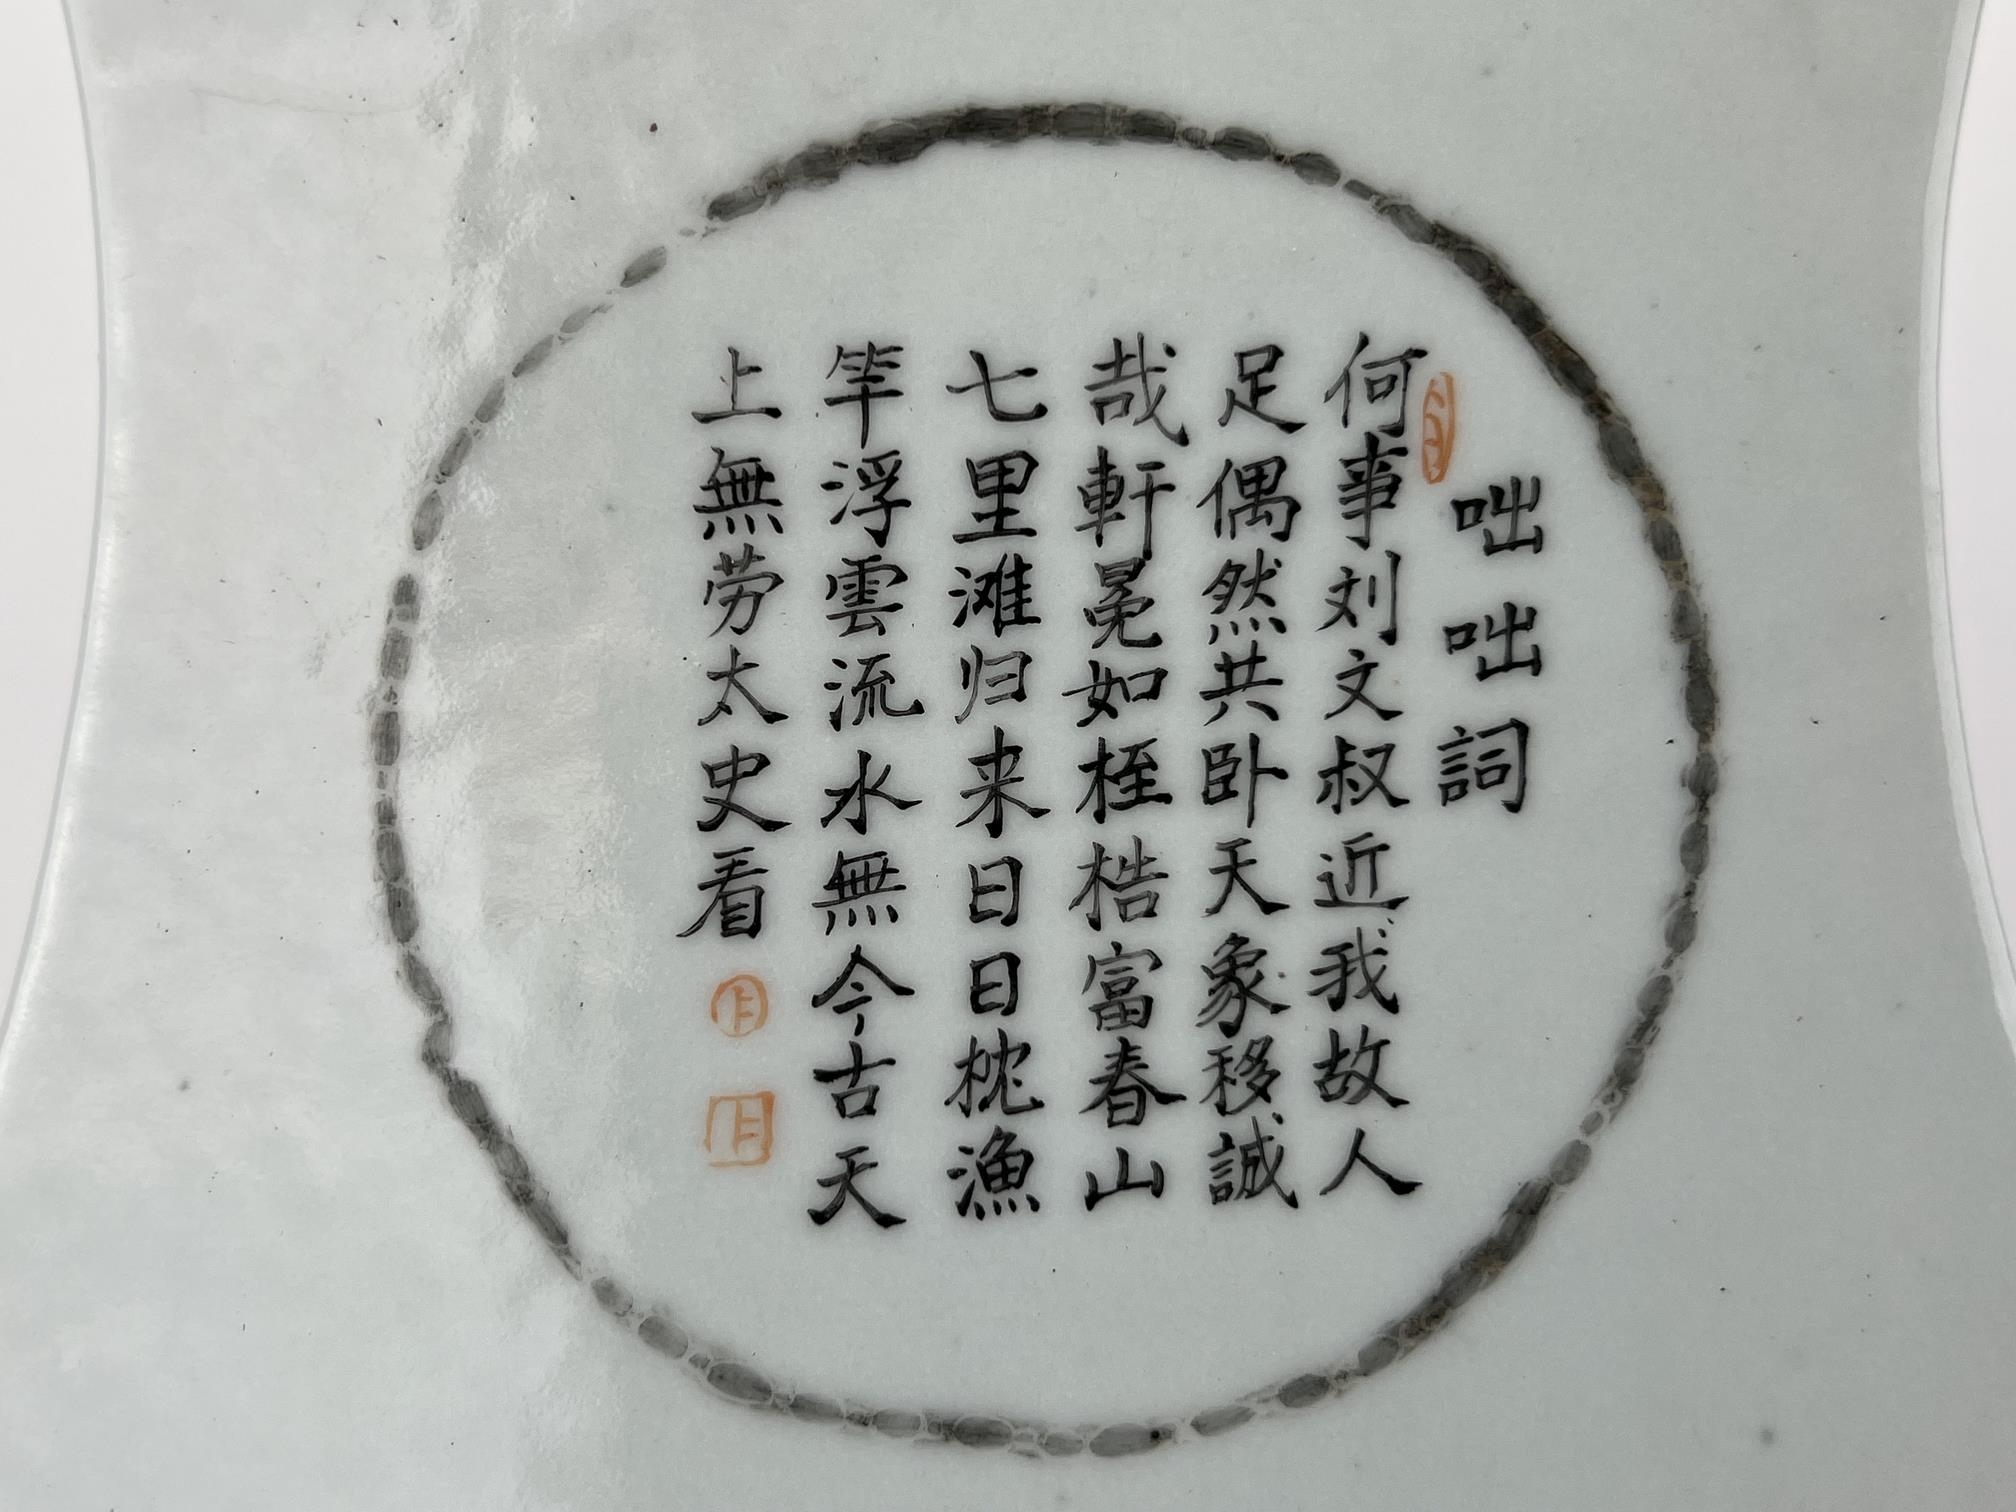 咄咄詞
何事刘文叔近我故人
足偶然共卧天象移誠
哉軒冕如桎梏富春山
七里滩归来日日枕漁
竿浮雲流水無今古天
上無劳太史看